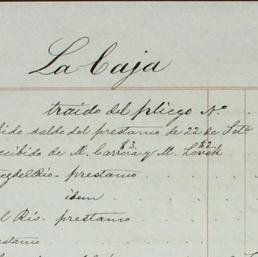 La Caja
traido del pliego Nº
bido saldo del prestamo de 22 de Set
cibido de M. Carrera y M.
del Rio prestamo
idem
l Rio prestamo
estamo